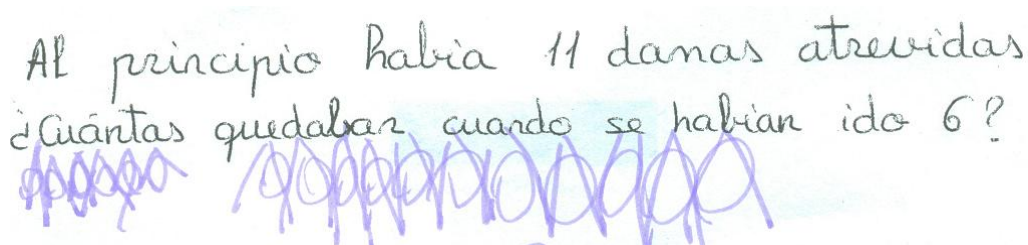 Al principio habia 11 damas atrevidas
¿Cuántas quedaban cuando se habían ido 6?